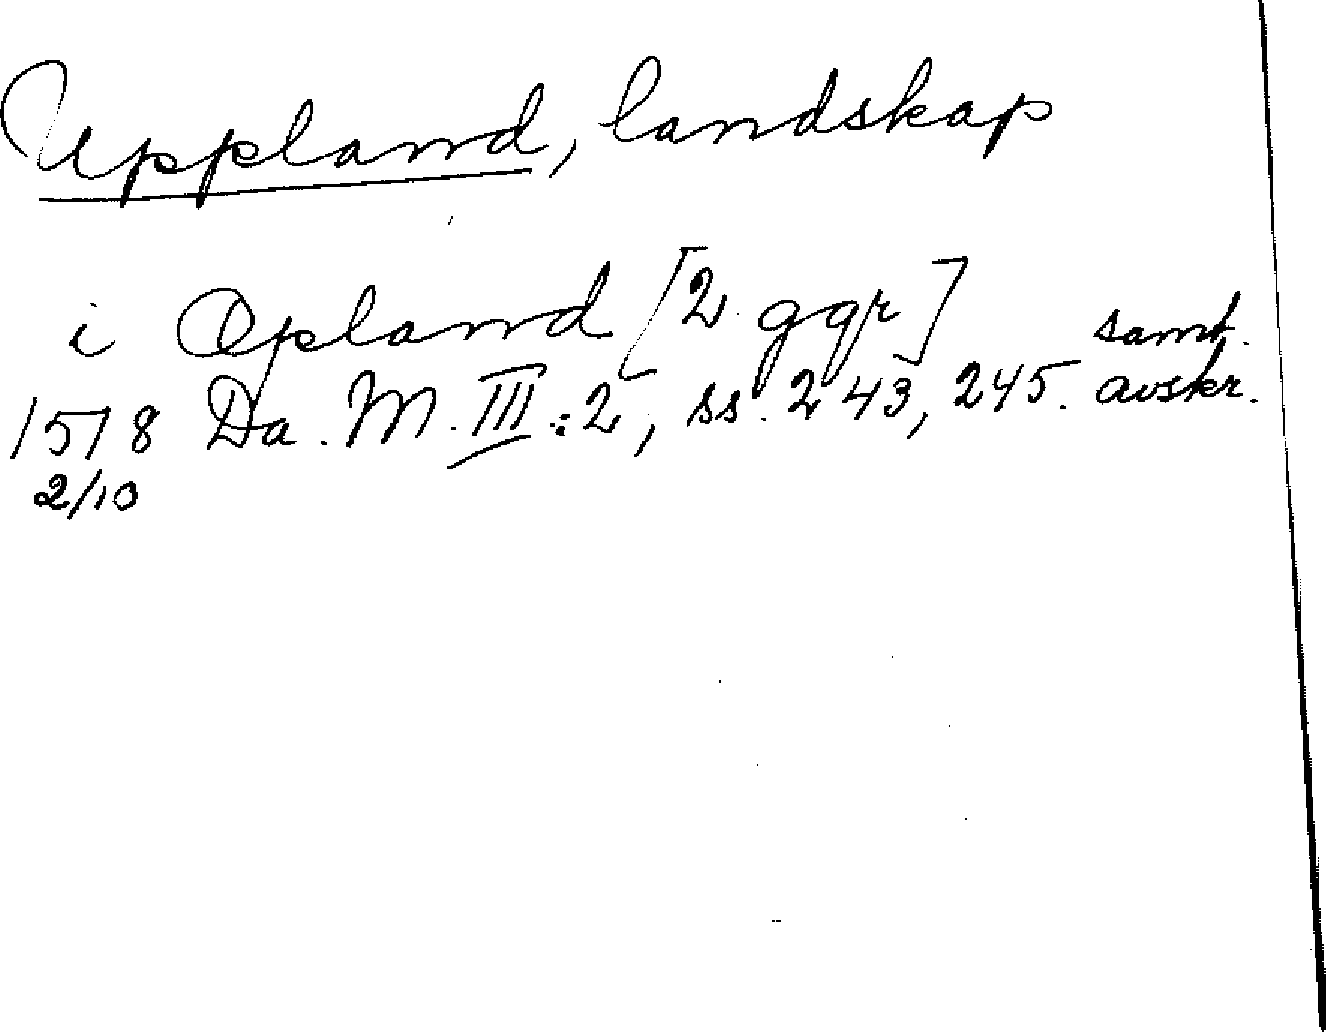 Uppland, landskap
i Opland [2 ggr]
samt.
1578 Da. M. III:2, ss. 243, 245. avskr.
2/10